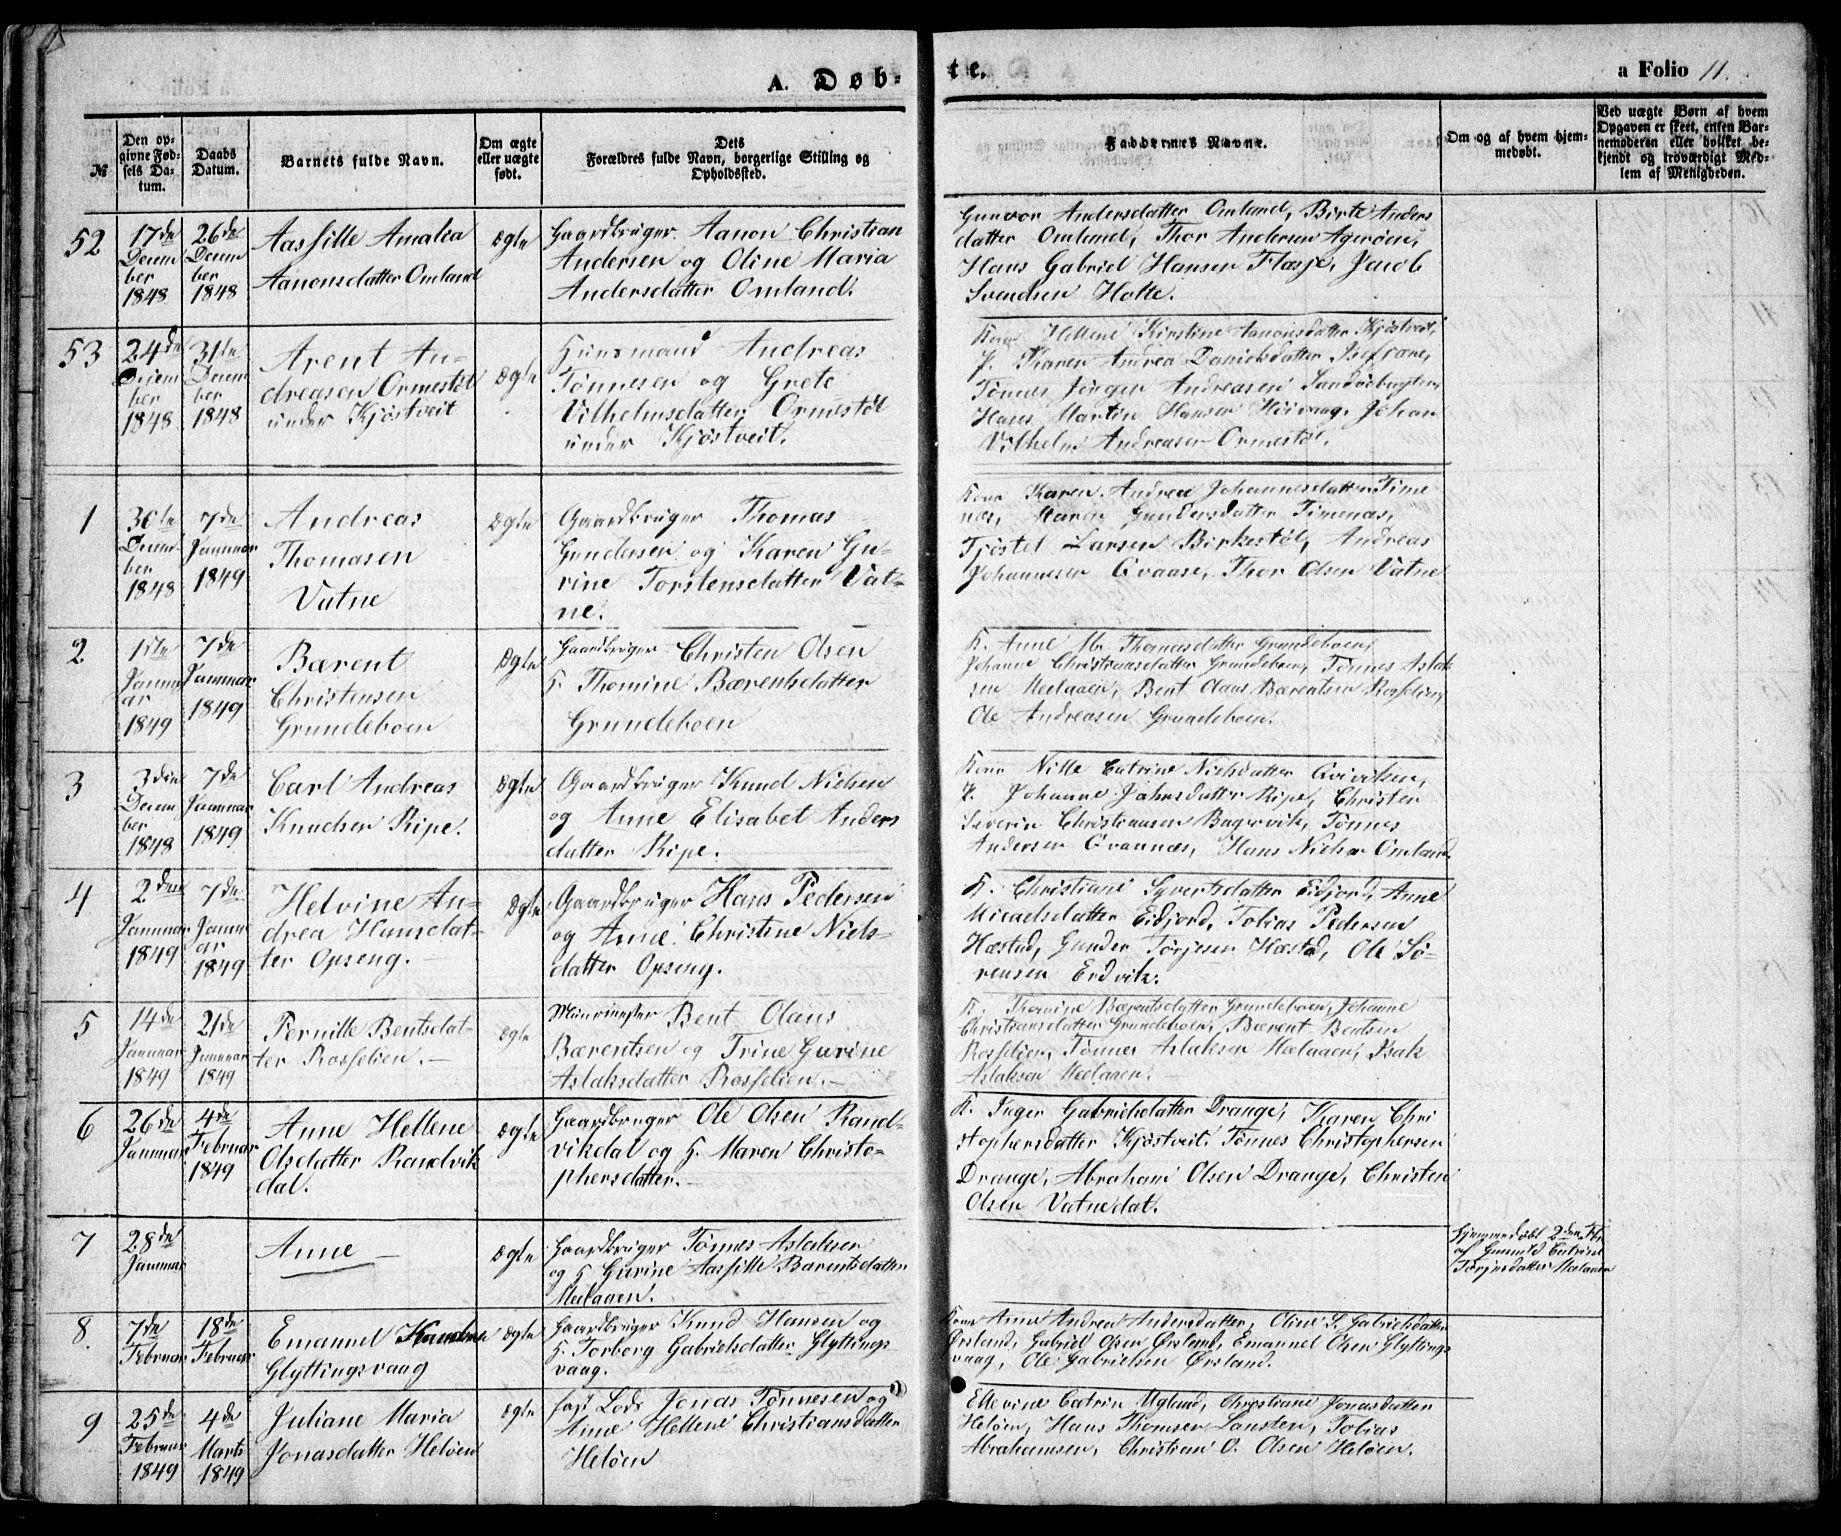 A. Døb-
te.
a Folio 11.
№
Den op-
givne Fød-
sels Da-
tum.
Daabs
Datum.
Barnets fulde Navn.
Om ægte
eller uægte
født.
Dets
Forældres fulde Navn, borgerlige Stilling og
Opholdssted.
Faddernes Navne.
Om og af hvem hjem-
medøbt.
Ved uægte Børn af hvem
Opgaven er skeet, enten Bar-
nemoderen eller hvilket be-
kjendt og troværdigt Med-
lem af Menigheden.
52
17de
Decem
ber
1848
26de
Decem
ber
1848
Aassille Amalea
Aanonsdatter Omland
Ægte
Gaardbruger Aanon Christian
Andersen og Oline Maria
Andersdatter Omland.
Gunvor Andersdatter Omland, Birte Anders
datter Omland, Thor Andersen Agerøen,
Hans Gabriel Hansen Flasje, Jacob
Svendsen Holte.
53
24de
Decem
ber
1848
31te
Decem
ber
1848
Arent An-
dreasen Ormestøl
under Kjøstveit
Ægte
Huusmand Andreas
Tønnesen og Grete
Vilhelmsdatter Ormestøl
under Kjøstveit.
Kone Hellene Kirstine Aanonsdatter Kjøstveit,
P. Karen Andrea Danielsdatter
Tønnes Jørgen Andreasen Sandøebugten,
Hans Martin Hansen Høivaag, Johan
Vilhelm Andreasen Ormestøl.
1
30te
Decem
ber
1848
7de
Januar
1849
Andreas
Thomasen
Vatne
Ægte
Gaardbruger Thomas
Gundersen og Karen Gu-
rine Torstensdatter Vat-
ne.
Kone Karen Andrea Johannesdatter Time
næs, Maren Gundersdatter Timenæs,
Tjøstel Larsen Birkestøl, Andreas
Johannesen Qvaase, Thor Olsen Vatne
2
1ste
Janu
ar
1849
7de
Januar
1849
Bærent
Christensen
Grundeboen
Ægte
Gaardbruger Christen Olsen
H. Thomine Bærentsdatter
Grundeboen
K. Anne M. Thomasdatter Grundeboen,
Johanne Christiansdatter Grundeboen, Tønnes Aslak
sen Medaaen, Bent Claus Bærentsen Rosselien,
Ole Andreasen Grundeboen.
3
3die
Decem
ber
1848
7de
Januar
1849
Carl Andreas
Knudsen Ripe.
Ægte
Gaardbruger Knud Nielsen
og Anne Elisabet Anders
datter Ripe.
Kone Nille Catrine Nielsdatter Qviviken,
P. Johanne Jahnsdatter Ripe, Christen
Severin Christiansen Bagervik, Tønnes
Andersen Qvannæs, Hans Nielsen Omland.
4
2den
Januar
1849
7de
Janu
ar
1849
Helvine An-
drea Hansdat-
ter Opseng.
Ægte
Gaardbruger Hans Pedersen
og Anne Christine Niels-
datter Opseng.
K. Christiane Syvertsdatter Eidjord, Anne
Micaelsdatter Eidjord, Tobias Pedersen
Hæstad, Gunder Tørjesen Hæstad, Ole Sø-
rensen Erdvik.
5
14de
Januar
1849
21de
Januar
1849
Pernille Bentsdat-
ter Rosselien.
Ægte
Muurmester Bent Claus
Bærentsen og Trine Gurine
Aslaksdatter Rosselien.
K. Thomine Bærentsdatter Grundeboen, Johanne
Christiansdatter Grundeboen, Bærent Bentsen
Rosselien, Tønnes Aslaksen Medaaen, Isak
Aslaksen Medaaen.
6
26de
Januar
4de
Februar
1849
Anne Hellene
Olsdatter Randvik
dal.
Ægte
Gaardbruger Ole Olsen Rand-
vikdal og H. Maren Christo-
phersdatter.
K. Inger Gabrielsdatter Drange, Karen Chri
stophersdatter Kjøstveit. Tønnes Christophersen
Drange, Abraham Olsen Drange, Christen
Olsen Vatnedal.
7
28de
Januar
Anne
Ægte
Gaardbruger Tønnes Aslaksen
og H. Gurine Aassille Bærentsdatter
Medaaen.
Hjemmedøbt 2den Fbr
af Gunild Catrine
Tørjesdatter Medaaen
8.
7de
Februar
18de
Februar
Emanuel Knudsen
Glyttingsvaag
Ægte
Gaardbruger Knud Hansen og
H. Torborg Gabrielsdatter Glyttings
vaag.
Kone Anne Andrea Andersdatter, Oline S. Gabrielsdatter
Ørsland, Gabriel Olsen Ørsland, Emanuel Olsen Glyttings
vaag, Ole Gabrielsen Ørsland.
9
25de
Februar
1849
4de
Marts
1849
Juliane Maria
Jonasdatter Heløen
Ægte
fast Lods Jonas Tønnesen og
Anne Hellene Christiansdatter
Heløen
Ellevine Catrin Ugland, Christiane Jonasdatter
Heløen, Hans Thomsen Sansten, Tobias
Abrahamsen, Christian O. Olsen Heløen.